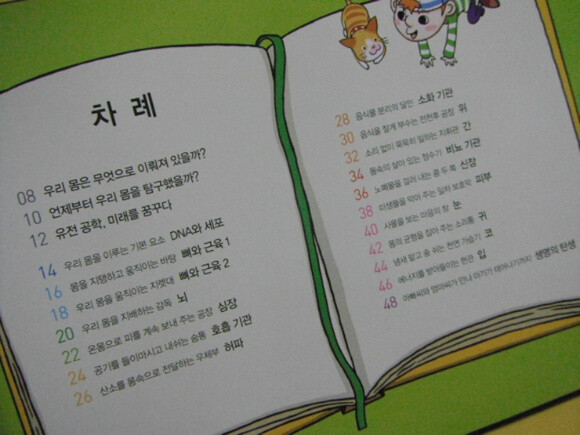 차 례
08 우리 몸은 무엇으로 이뤄져 있을까?
10 언제부터 우리 몸을 탐구했을까?
12 유전 공학, 미래를 꿈꾸다
14 우리 몸을 이루는 기본 요소 DNA와 세포
16 몸을 지탱하고 움직이는 바탕 뼈와 근육 1
18 우리 몸을 움직이는 지렛대 뼈와 근육 2
20 우리 몸을 지배하는 감독 뇌
22 온몸으로 피를 계속 보내 주는 공장 심장
24 공기를 들이마시고 내쉬는 숨통 호흡 기관
26 산소를 몸속으로 전달하는 우체부 허파
28 음식물 분리의 달인 소화 기관
30 음식물을 잘게 부수는 천연주 공장 위
32 소리 없이 묵묵히 일하는 지휘관 간
34 몸속의 살아 있는 정수기 비뇨 기관
36 노폐물을 걸러 내는 콩 두 쪽 신장
38 미생물을 막아 주는 일차 보호막 피부
40 사물을 보는 마음의 창 눈
42 몸의 균형을 잡아 주는 소리통 귀
44 냄새 맡고 숨 쉬는 천연 가습기 코
46 에너지를 받아들이는 현관 입
48 아빠씨와 엄마씨가 만나 아기가 태어나기까지 생명의 탄생